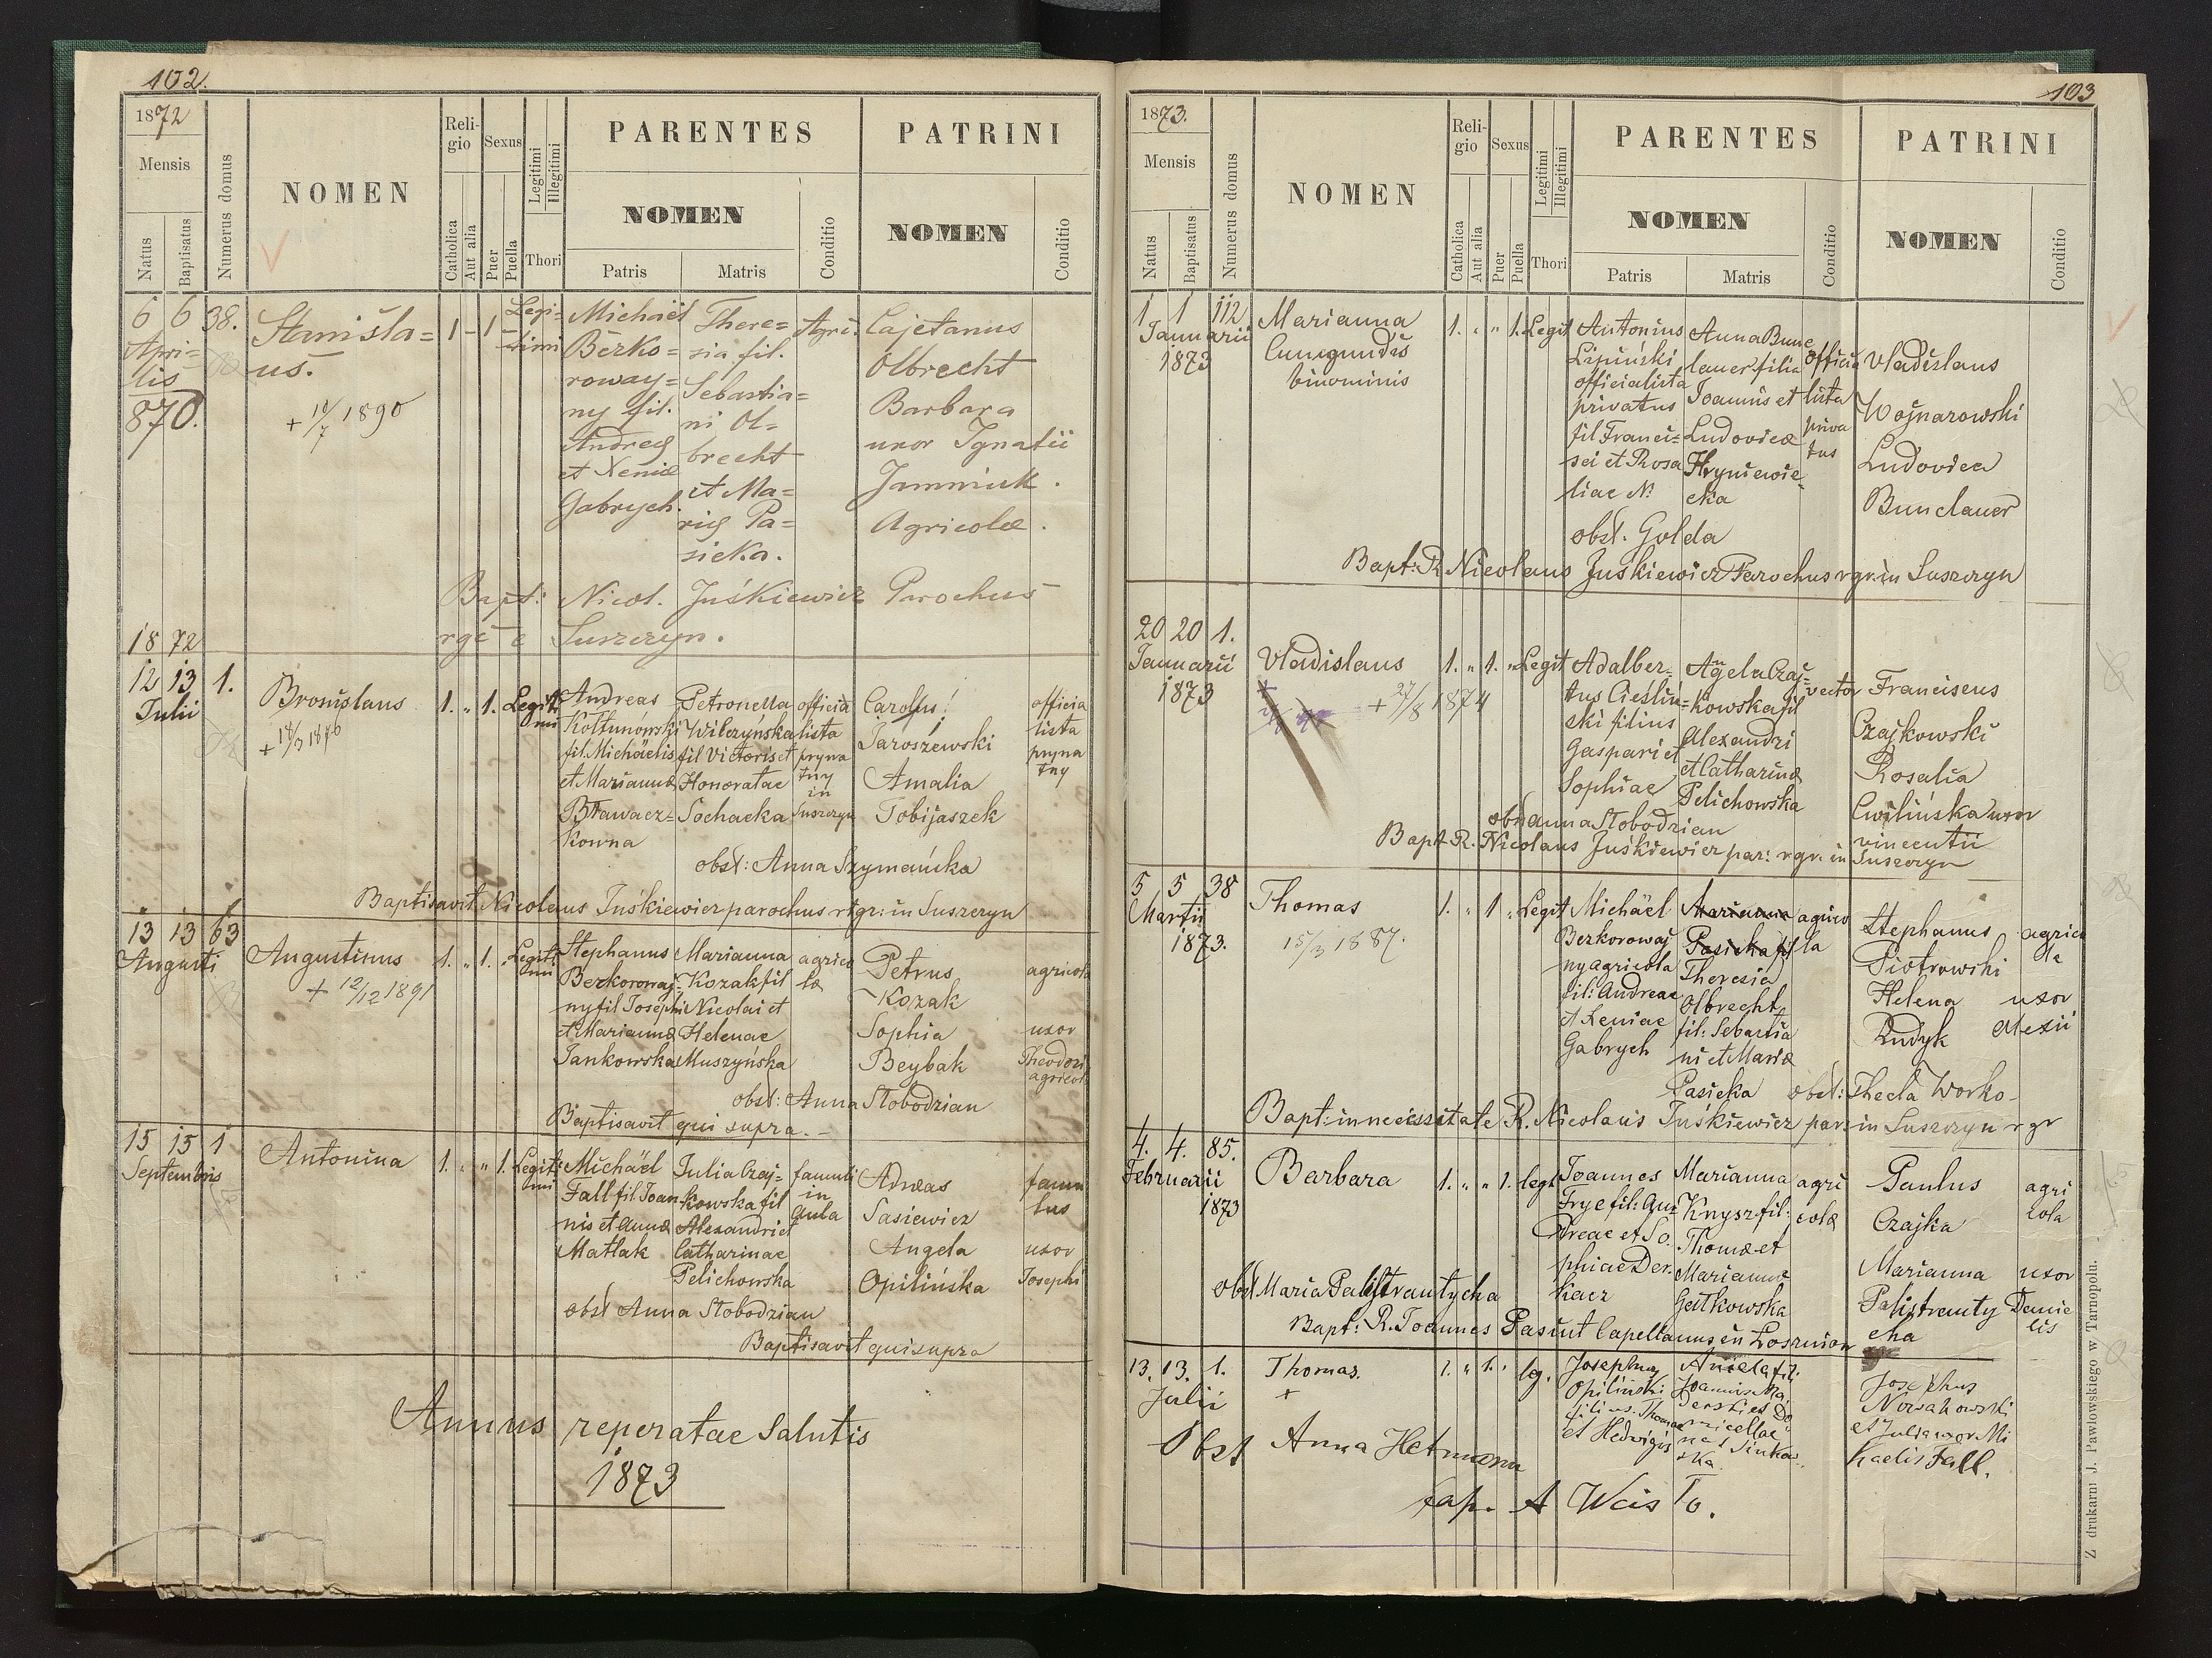 102.
1872
Mensis
Natus
Baptisatus
Numerus domus
NOMEN
Religio
Catholica
Aut alia
Sexus
Puer
Puella
Legitimi
Illegitimi
Thori
PARENTES
NOMEN
Patris
Matris
Conditio
PATRINI
NOMEN
Conditio
6 6 38.
Apri=
lis
870.
Stanisla=
us.
+ 10/7 1890
1 - 1
Legi=
timi
Michaël
Berko=
roway=
ny fil.
Andreę
et Xeniæ
Gabrych.
There=
sia fil.
Sebastia=
ni Ol=
brecht
et Ma=
rię Pa=
sieka.
Agri.
Cajetanus
Olbrecht
Barbara
uxor Ignatii
Jamniuk.
Agricolæ.
Bapt: Nicol. Juśkiewicz Parochus
rgc e Suszczyn.
18 72
12 13 1.
Julii
Bronislaus
+ 18/3 1876
1. " 1. Legiti
mi
Andreas
Kołtunowski
fil. Michäelis
et Mariannæ
Bławacz=
kowna
Petronella
Wilczyńska
fil Victoris et
Honoratae
Sochacka
officia
lista
pryna
tny
in
Suszczyn
Carolus!
Jaroszewski
Amalia
Tobijaszek
officia
lista
pryna
tny
obst: Anna Szymańska
Baptisavit Nicolaus Juśkiewicz parochus rtgr: in Suszczyn
13 13 63
Augusti
Augustinus
+ 12/12 1891
1. " 1. Legiti
mi
Stephanus
Berkorowaj=
ny fil Josephi
et Mariannæ
Jankowska
Marianna
Kozak fil
Nicolai et
Helenae
Muszyńska
agrico
læ
Petrus
Kozak
Sophia
Beybak
agricola
uxor
Theodori
agricol
obst: Anna Słobodzian
Baptisavit qui supra.-
15 15 1
Septembris
Antonina
1. " " 1. Legiti
mi
Michäel
Fall fil Joan
nis et Annæ
Matlak
Julia Czaj=
kowska fil
Alexandri et
Catharinae
Pelichowska
famuli
in
aula
Adreas
Sasiewicz
Angela
Opilińska
famu
lus
uxor
Josephi
obst Anna Słobodzian
Baptisavit qui supra
Annus reperatae Salutis
1873
103
1873.
Mensis
Natus
Baptisatus
Numerus domus
NOMEN
Religio
Catholica
Aut alia
Sexus
Puer
Puella
Legitimi
Illegitimi
Thori
PARENTES
NOMEN
Patris
Matris
Conditio
PATRINI
NOMEN
Conditio
1 1 112
Januarii
1873
Marianna
Cunegundis
binominis
1. " " 1. Legit
Antonius
Lipiński
officialista
privatus
fil Franci=
sci et Rosa
liae N:
Anna Bunc
lauer filia
Joannis et
Ludovicæ
Hryniewie
cka
officia
lista
priva
tus
Vladislaus
Wojnarowski
Ludovica
Bunclauer
obst. Golda
Bapt: R. Nicolaus Juśkiewicz Parochus r gr. in Suszczyn
20 20 1.
Januarii
1873
Vladislaus
+ 27/8 1874
1. " 1. " Legit
Adalber=
tus Cieślin=
ski filius
Gaspari et
Sophiae
Angela Czaj=
kowska fil
Alexandri
et Catharinæ
Pelichowska
vector
Franciscus
Czajkowski
Rosalia
Cwilinska uxor
vincentii
obst Anna Słobodzian
Bapt. R. Nicolaus Juśkiewicz par: r gr. in Suszczyn
5 5 38
Martii
1873.
Thomas
15/3 1887.
1. " 1 " Legit
Michäel
Berkorowaj
ny agricola
fil: Andreae
et Xeniae
Gabrych
Marianna
Pasieka fil
Theresia
Olbrecht
fil: Sebastia
ni et Mariæ
Pasieka
agrico
la
Stephanus
Piotrowski
Helena
Rudyk
agrico
la
uxor
Alexii
obst: Thecla Worko-
Bapt: in neccessitate R. Nicolaus Juśkiewicz par: in Suszczyn r gr
4. 4. 85.
Februarii
1873
Barbara
1. " " 1. legt
Joannes
Fryc fil: An=
dreae et So.
phiae Der.
kacz
Marianna
Knysz fil:
Thomæ et
Mariannæ
Gutkowska
agri
colæ
Paulus
Czajka
Marianna
Palistranty
cha
agri
cola
uxor
Danie
lis
obst Maria Palistrantycha
Bapt: R. Joannes Pasiut Capellanus in Łoszniow
13. 13. 1.
Julii
Thomas.
+
1. " 1. " lg.
Josephus
Opiliński
filius Thomae
et Hedwigis
Aniela fil.
Joannis Ma
derski et Do
micellae
nat Sinkow
ska
Josephus
Nowakowski
et Julia uxor Mi
haelis Fall.
Obst Anna Hetmann
Cap. A Weis To.
Z drukarni J. Pawłowskiego w Tarnopolu.